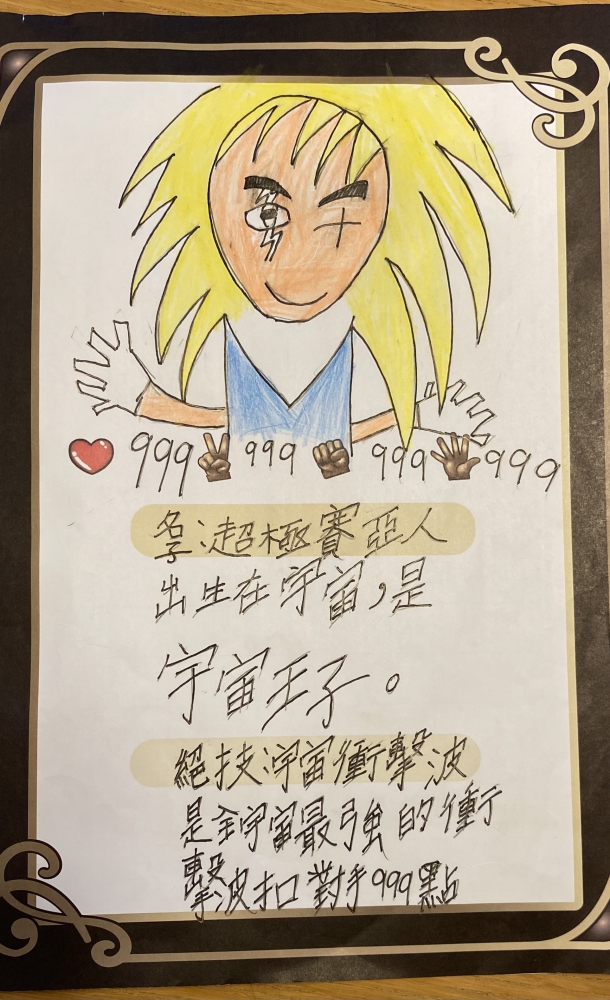 999 999 999 999
名字:超極賽亞人
出生在宇宙,是
宇宙王子。
絕技:宇宙衝擊波
是全宇宙最強的衝
擊波扣對手999點